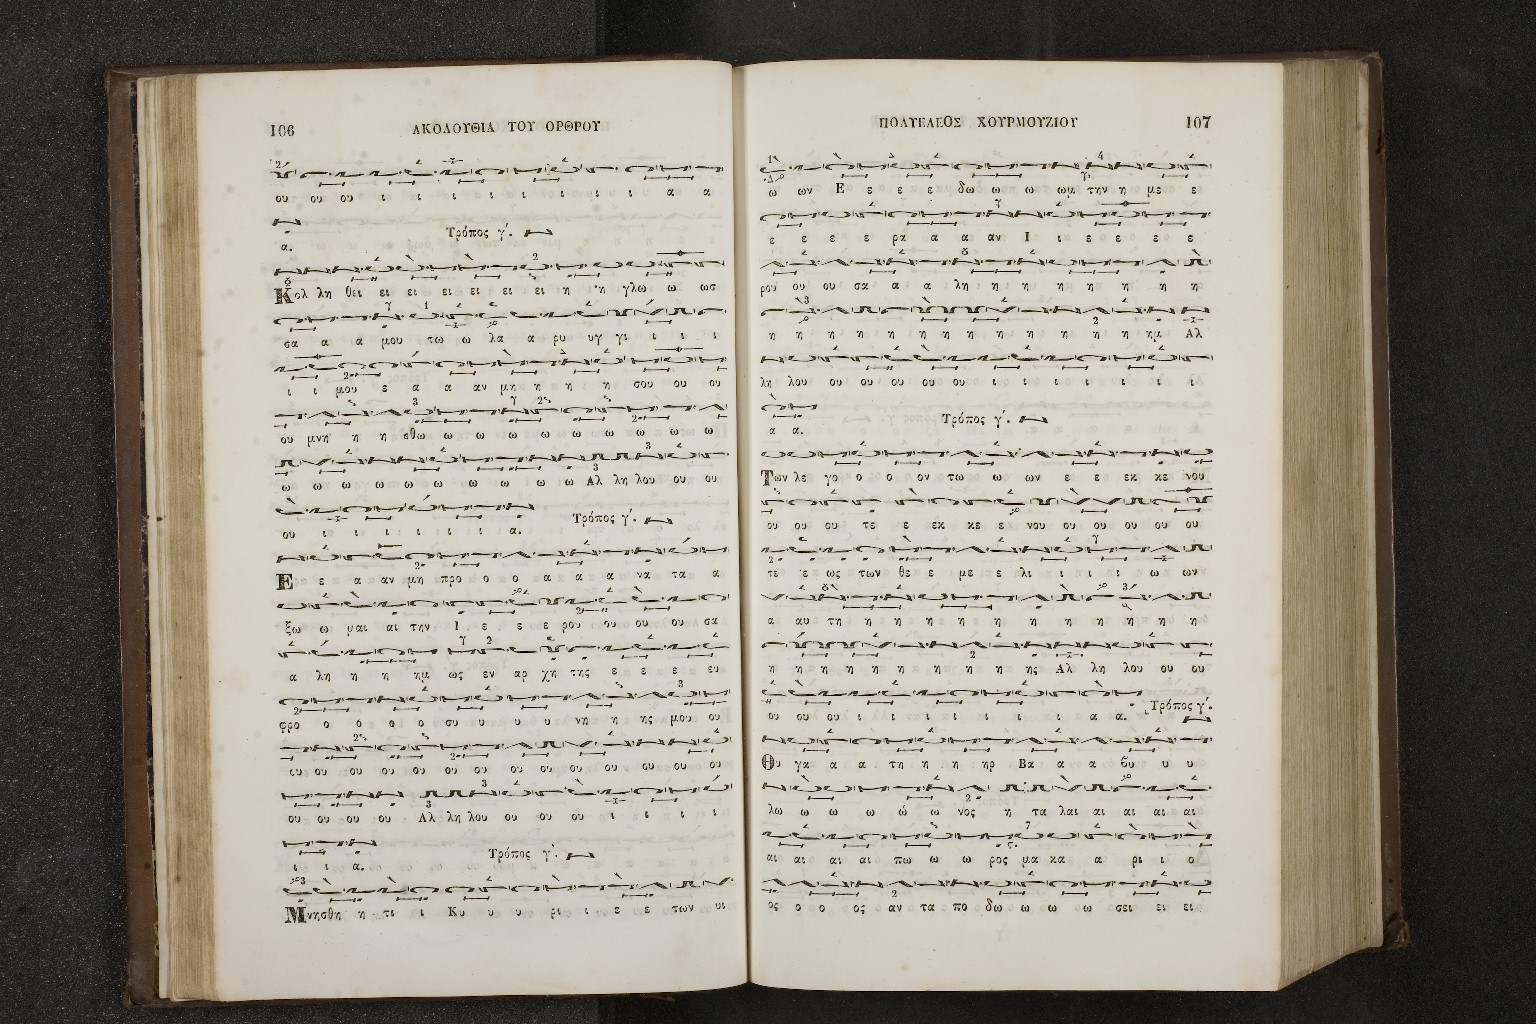 106
ΑΚΟΛΟΥΘΙΑ ΤΟΥ ΟΡΘΡΟΥ
ου ου ου ι ι ι ι ι ι ι ι ι α α
α.
Τρόπος γ'.
Κολ λη θει ει ει ει ει ει ει η η γλω ω ωσ
σα α α μου τω ω λα α ρυ υγ γι ι ι ι
ι ι μου ε α α αν μη η η η σου ου ου
ου μνη η η σθω ω ω ω ω ω ω ω ω ω
ω ω ω ω ω ω ω ω ω ω Αλ λη λου ου ου
ου ι ι ι ι ι ι α.
Τρόπος γ'.
Ε ε α αν μη προ ο ο α α α να τα α
ξω ω μαι αι την Ι ε ε ε ρου ου ου ου σα
α λη η η ημ ως εν αρ χη της ε ε ε ευ
φρο ο ο ο ο ο συ υ υ υ νη η ης μου ου
ου ου ου ου ου ου ου ου ου ου ου ου ου ου
ου ου ου ου Αλ λη λου ου ου ου ι ι ι ι
ι ι α.
Τρόπος γ'.
Μνησθη η τι ι Κυ υ υ ρι ι ε ε των υι
ΠΟΛΥΕΛΕΟΣ ΧΟΥΡΜΟΥΖΙΟΥ
107
ω ων Ε ε ε ε δω ω ω ωμ την η με ε
ε ε ε ε ρα α α αν Ι ι ε ε ε ε
ρου ου ου σα α α λη η η η η η η η
η η η η η η η η η η η η ημ Αλ
λη λου ου ου ου ου ου ι ι ι ι ι ι ι
α α.
Τρόπος γ'.
Των λε γο ο ο ον τω ω ων ε ε εκ κε νου
ου ου ου τε ε εκ κε ε νου ου ου ου ου ου
τε ε ως των θε ε με ε λι ι ι ι ω ων
α αυ τη η η η η η η η η η η η
η η η η η η η η η ης Αλ λη λου ου ου
ου ου ου ι ι ι ι ι ι ι α α.
Τρόπος γ'.
Θυ γα α α τη η η ηρ Βα α α βυ υ υ
λω ω ω ω ω ω νος η τα λαι αι αι αι αι
αι αι αι αι πω ω ω ρος μα κα α ρι ι ο
ος ο ο ος αν τα πο δω ω ω ω σει ει ει